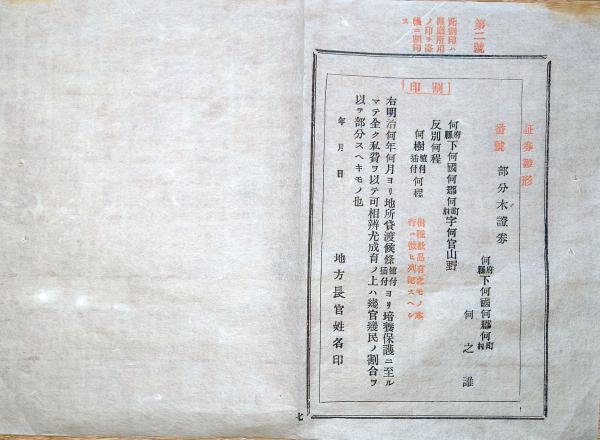 第二號
此割印ハ
ノ印ヲ
機ニ割印
ス
割印
証券雛形
番號
部分木證券
何府縣下何國何郡何町村
何之誰
何府縣下何國何郡何町村字何官山野
反別何程
何樹植付插付何程
樹種數品有之モノハ本
行ニ傚ヒ列記スヘシ
右明治何年何月ヨリ地所貸渡候條植付插付ヨリ培養保護ニ至ル
マテ全ク私費ヲ以テ可相辨尤成育ノ上ハ幾官幾民ノ割合ヲ
以テ部分スヘキモノ也
年月日
地方長官姓名印
七